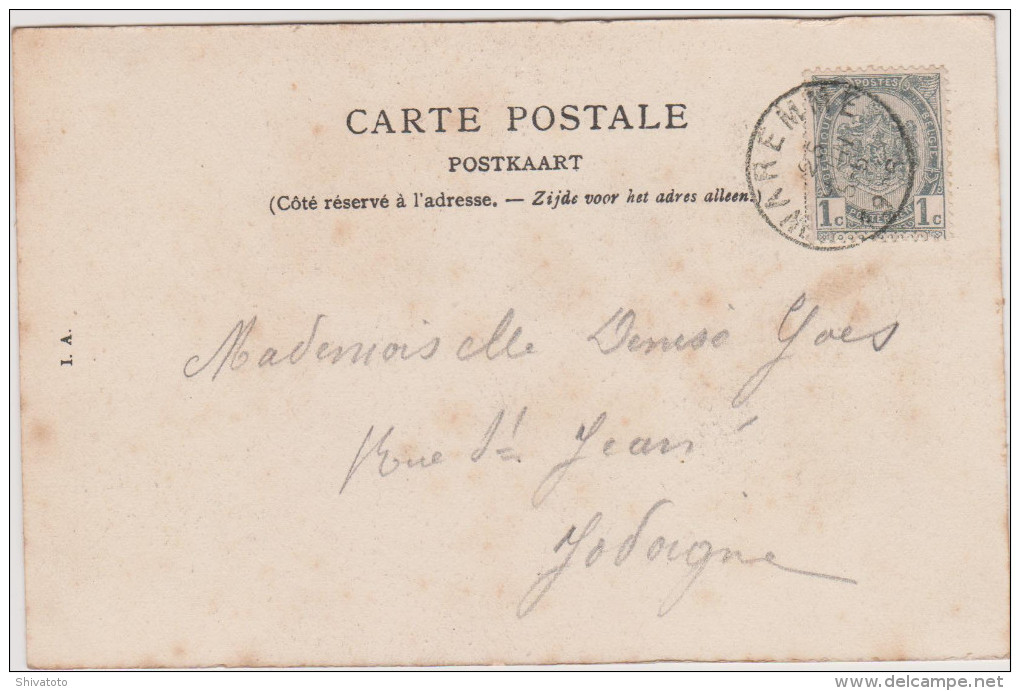 CARTE POSTALE
POSTKAART
(Côté réservé à l'adresse. — Zijde voor het adres alleen.)
WAREMME
POSTES
1c 1c
I. A.
Mademoiselle Denise Goes
Rue St Jean
Jodoigne
Shivatoto
www.delcampe.net